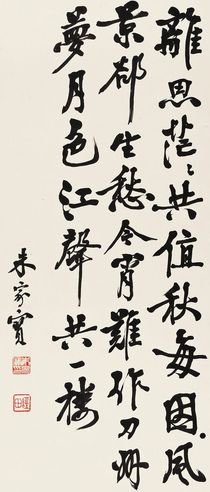 離思茫〻共值秋每因風
景郤生愁今宵難作刀州
夢月色江聲共一樓
朱家寶